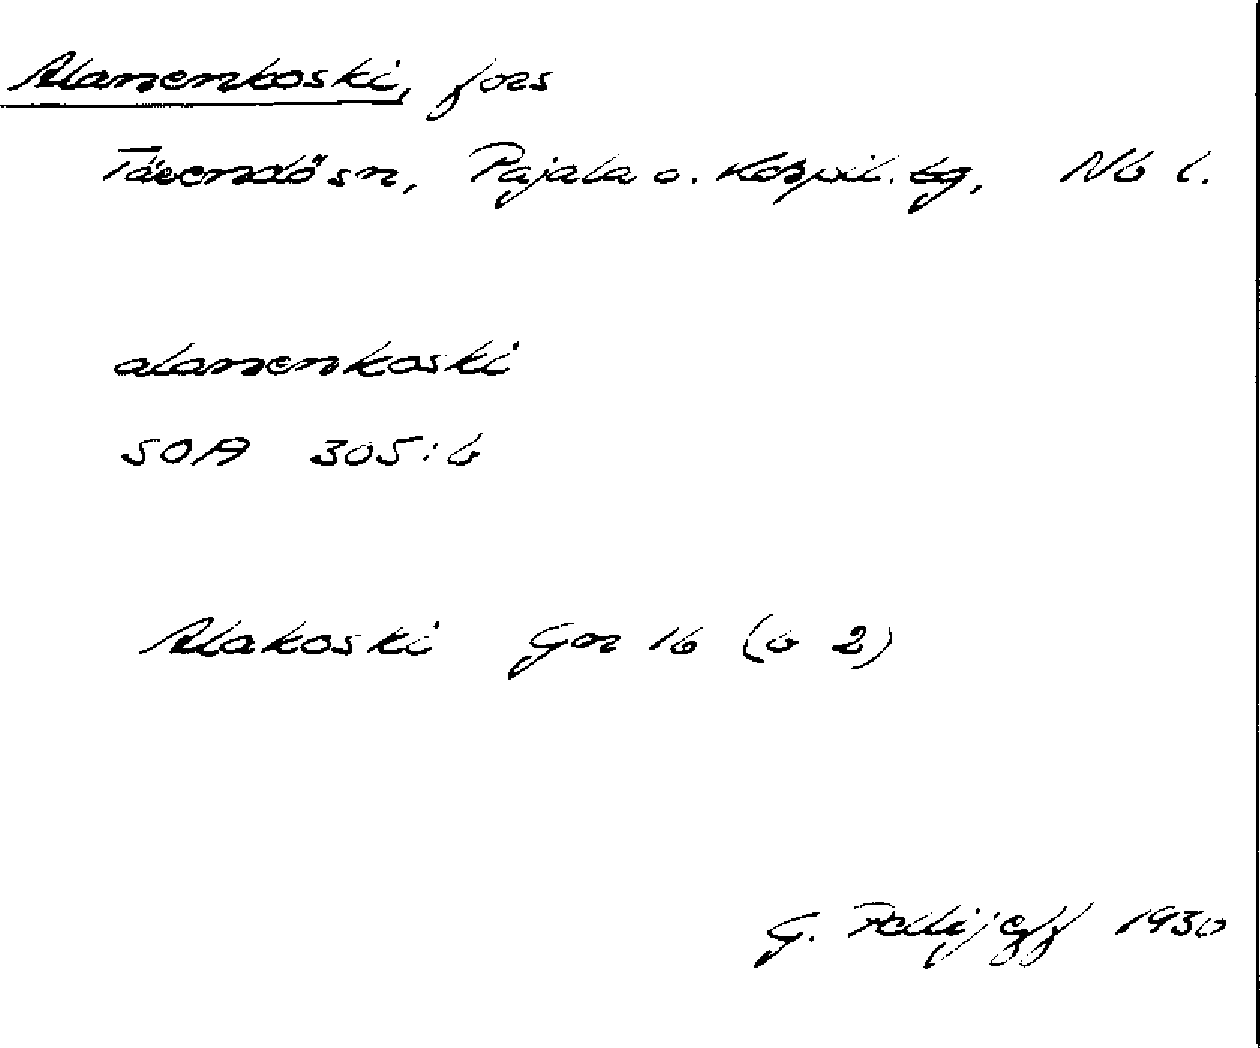 Alanenkoski, fors
Tärendö sn, Pajala o. Korpil. tg, Nb l.
alanenkoski
SOA 305:6
Alakoski Gor 16 (b 2)
G. Pellijeff 1930